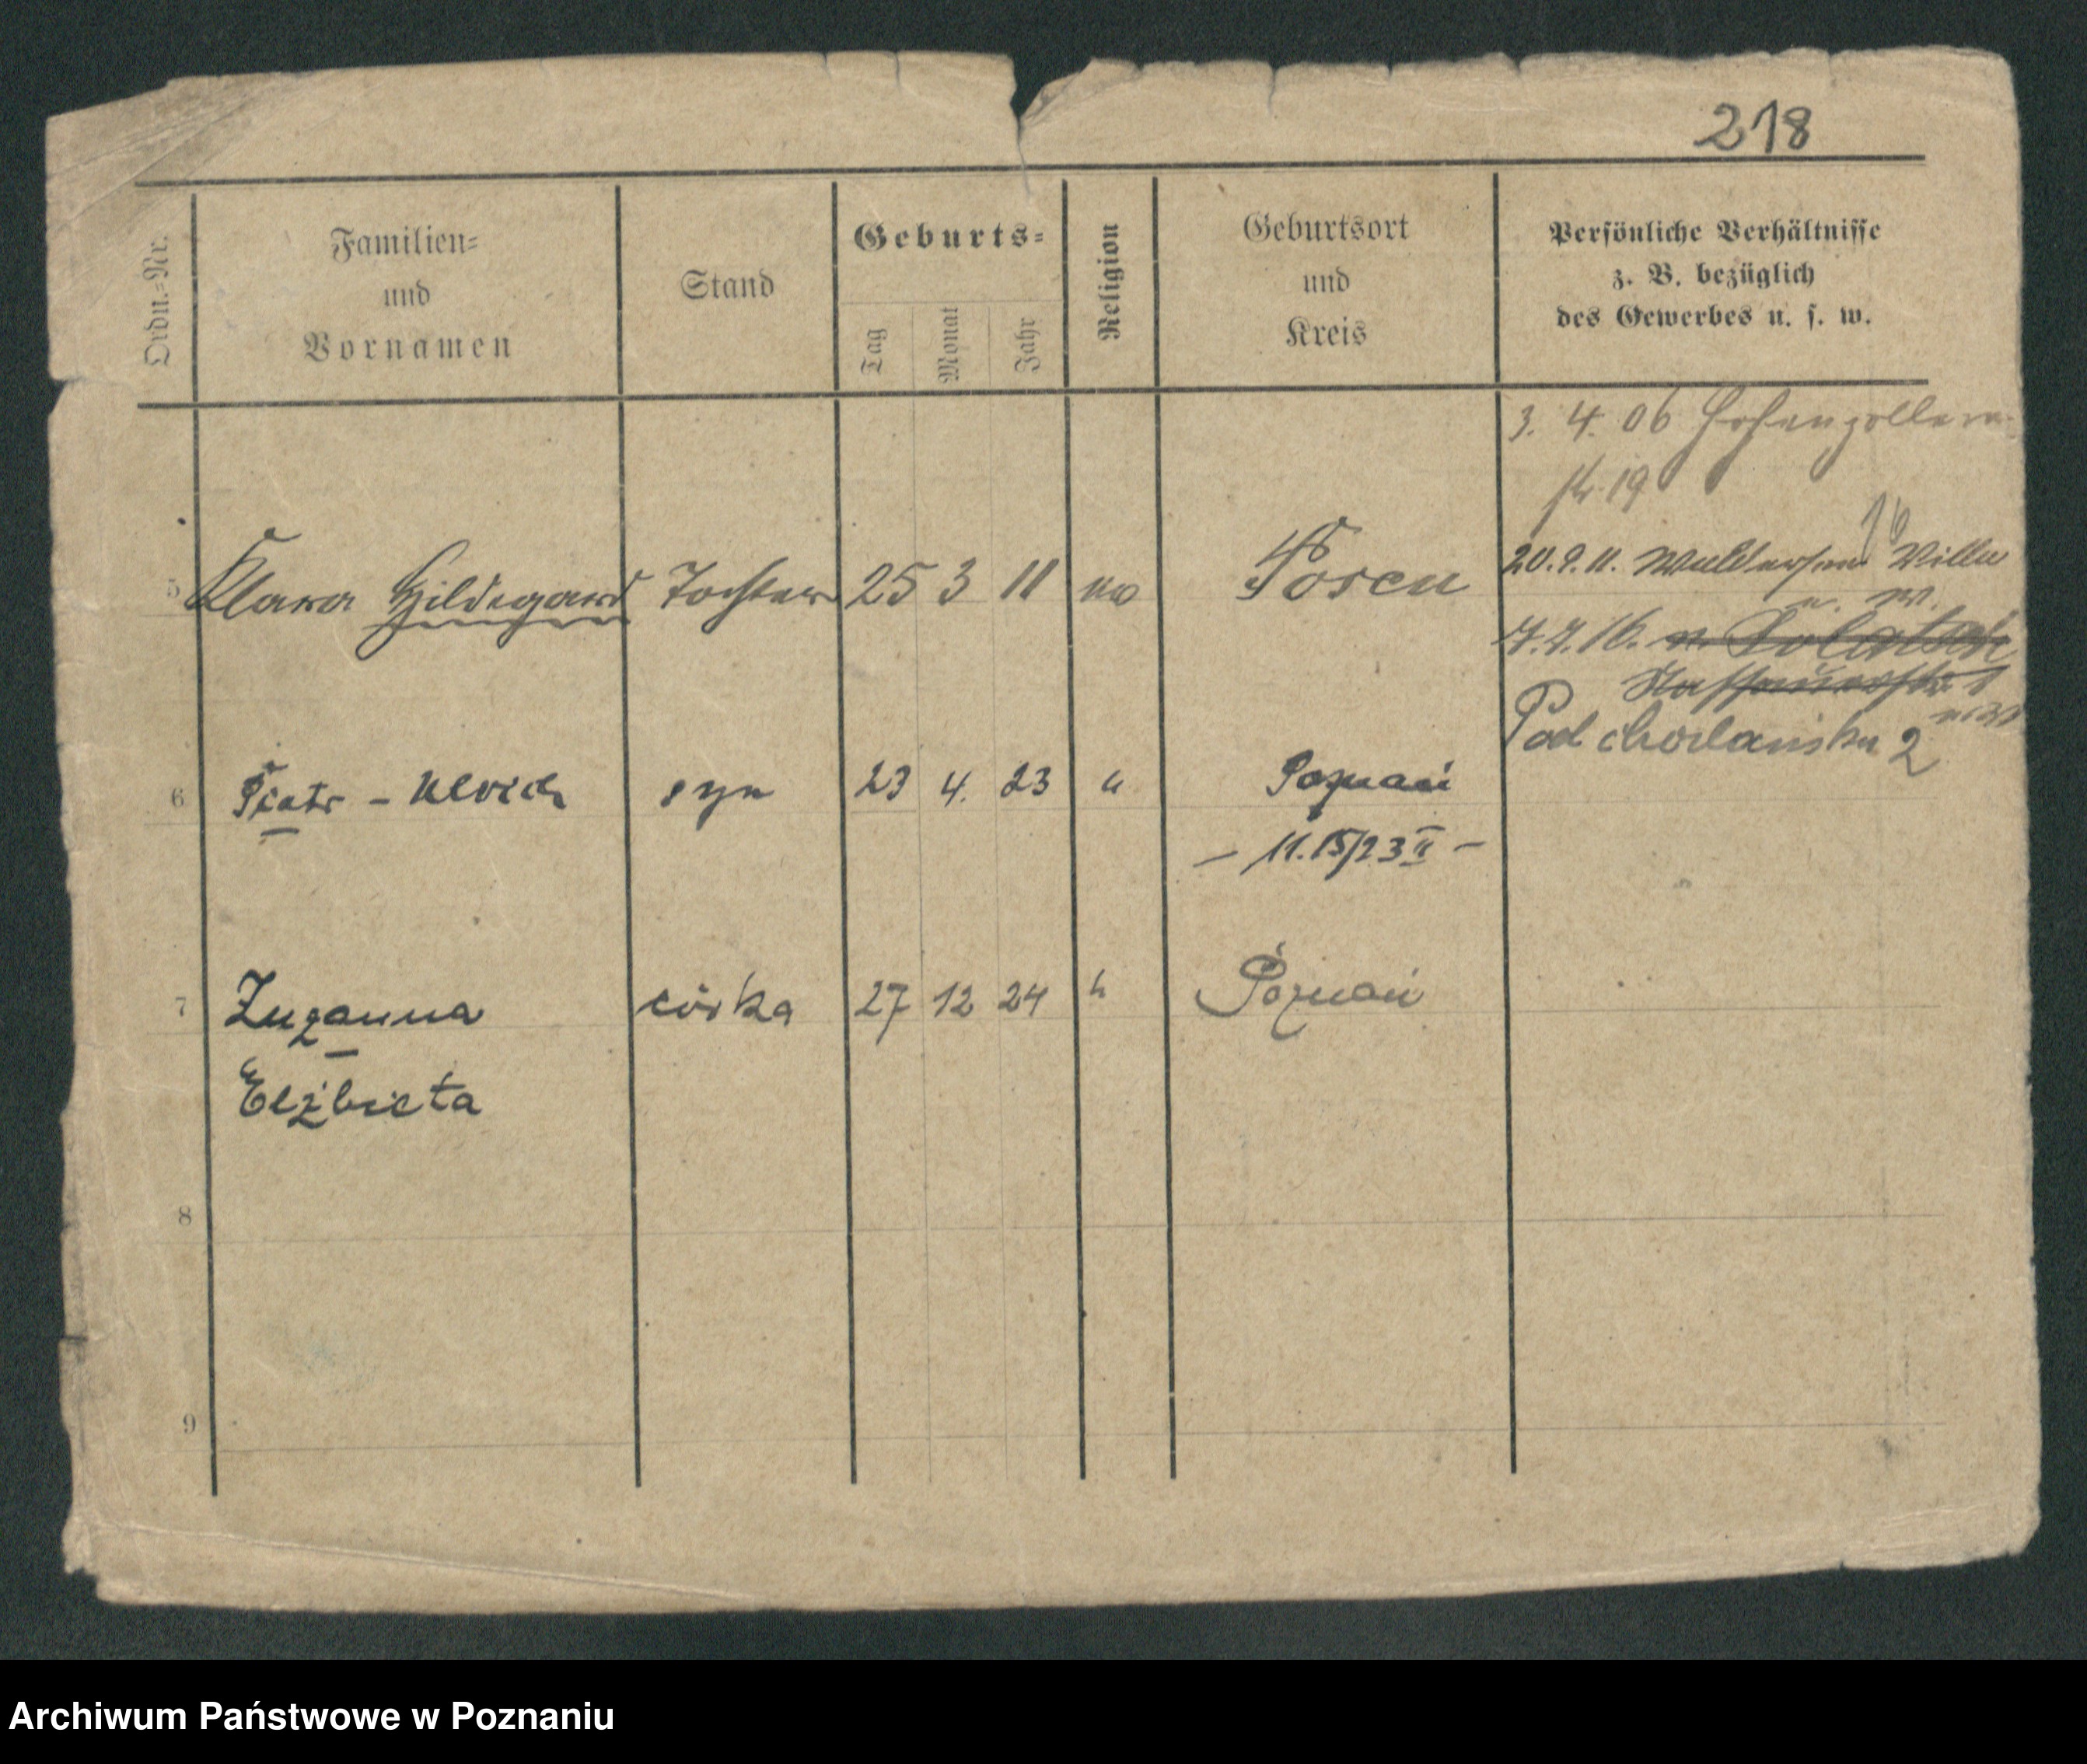 218
Ordn.-Nr.
Familien-
und
Vornamen
Stand
Geburts-
Tag
Monat
Jahr
Religion
Geburtsort
und
Kreis
Persönliche Verhältnisse
z. B. bezüglich
des Gewerbes u. s. w.
3. 4. 06 Hohenzollern
str. 19
16
5 Klara Hildegard Tochter 25 3 11 Posen 20. 9. 11. Waldersee Villa
u. W.
7. 7. 16.
1
2
6 Piotr - Ulrich syn 23 4. 23 " Poznań
- 11.15/23 II -
7 Zuzanna córka 27 12 24 " Poznań
Elżbieta
8
9
Archiwum Państwowe w Poznaniu